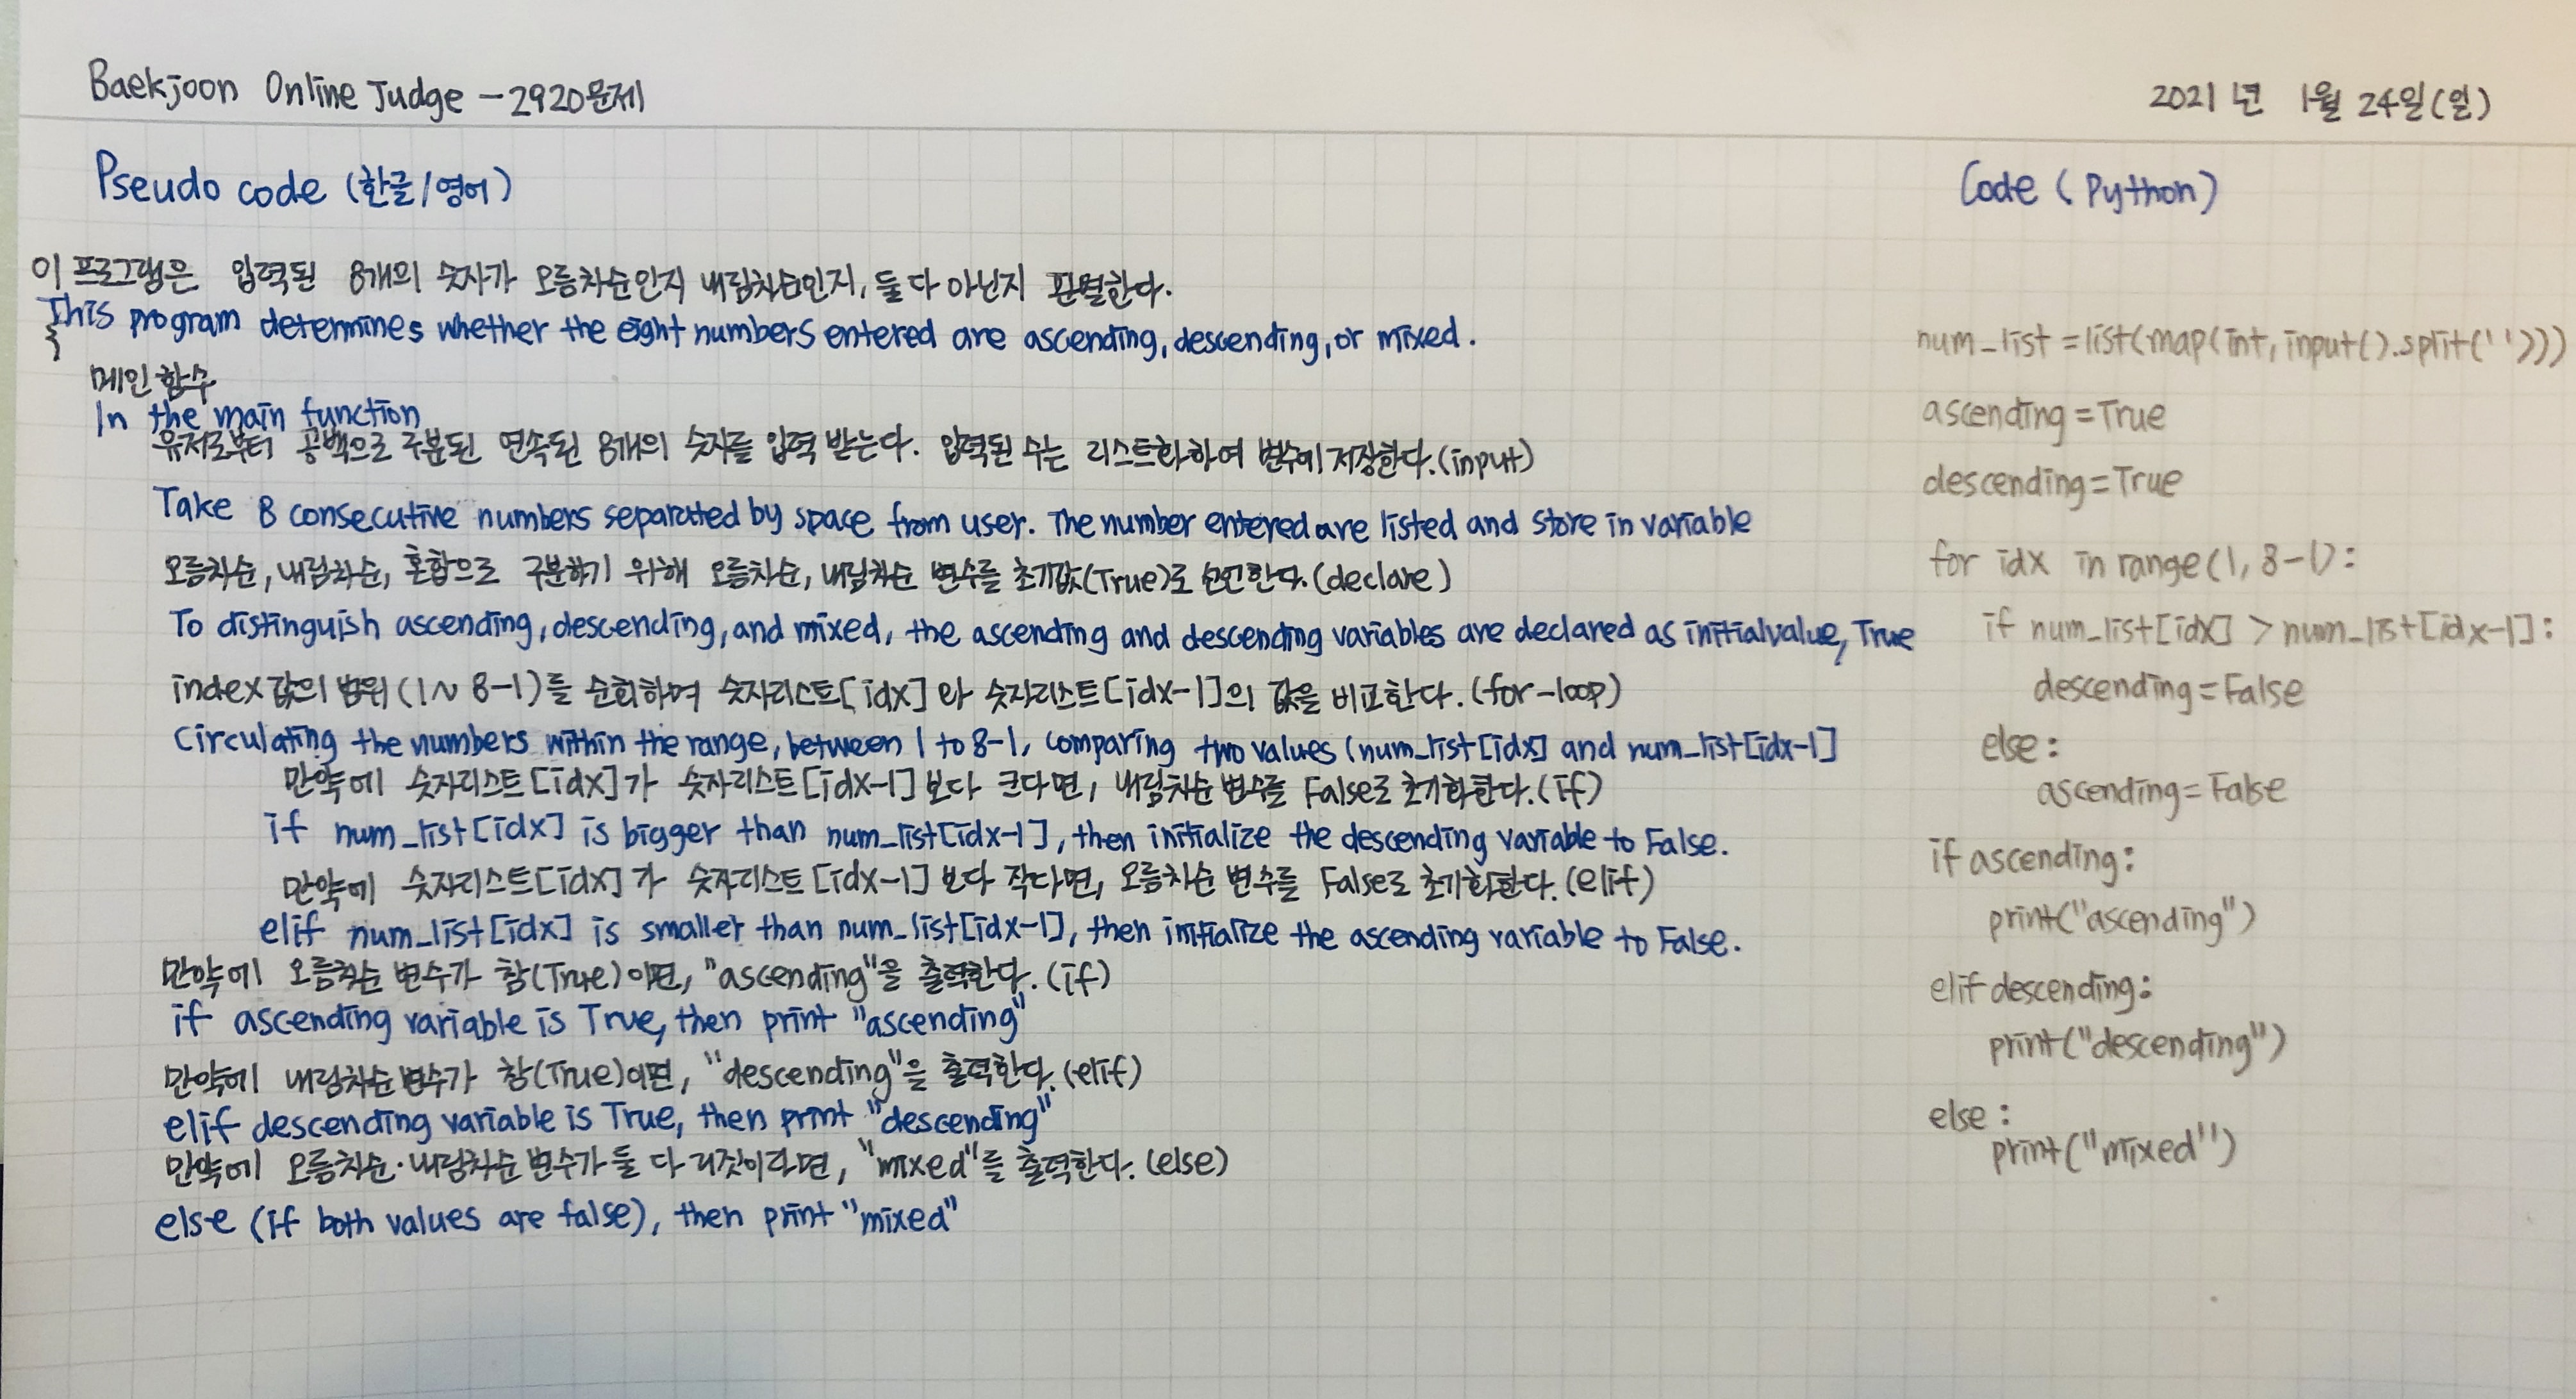 Baekjoon Online Judge - 2920문제
2021년 1월 24일(일)
Pseudo code (한글/영어)
이 프로그램은 입력된 8개의 숫자가 오름차순인지 내림차순인지, 둘 다 아닌지 판별한다.
This program determines whether the eight numbers entered are ascending, descending, or mixed.
{
메인 함수
In the main function
유저로부터 공백으로 구분된 연속된 8개의 숫자를 입력 받는다. 입력된 수는 리스트화하여 변수에 저장한다.(input)
Take 8 consecutive numbers separated by space from user. The number entered are listed and store in variable
오름차순, 내림차순, 혼합으로 구분하기 위해 오름차순, 내림차순 변수를 초기값(True)로 선언한다.(declare)
To distinguish ascending, descending, and mixed, the ascending and descending variables are declared as initialvalue, True
index값의 범위(1~8-1)를 순회하며 숫자리스트[idx]와 숫자리스트[idx-1]의 값을 비교한다.(for-loop)
Circulating the numbers within the range, between 1 to 8-1, comparing two values (num_list[idx] and num_list[idx-1]
만약에 숫자리스트[idx]가 숫자리스트[idx-1]보다 크다면, 내림차순 변수를 False로 초기화한다.(if)
if num_list[idx] is bigger than num_list[idx-1], then initialize the descending variable to False.
만약에 숫자리스트[idx]가 숫자리스트[idx-1]보다 작다면, 오름차순 변수를 False로 초기화한다.(elif)
elif num_list[idx] is smaller than num_list[idx-1], then initialize the ascending variable to False.
만약에 오름차순 변수가 참(True)이면, "ascending"을 출력한다.(if)
if ascending variable is True, then print "ascending"
만약에 내림차순 변수가 참(True)이면, "descending"을 출력한다.(elif)
elif descending variable is True, then print "descending"
만약에 오름차순·내림차순 변수가 둘 다 거짓이라면, "mixed"를 출력한다.(else)
else (if both values are false), then print "mixed"
Code (Python)
num_list = list(map(int, input().split(' ')))
ascending = True
descending = True
for idx in range(1, 8-1):
if num_list[idx] > num_list[idx-1]:
descending = False
else:
ascending = False
if ascending:
print("ascending")
elif descending:
print("descending")
else:
print("mixed")